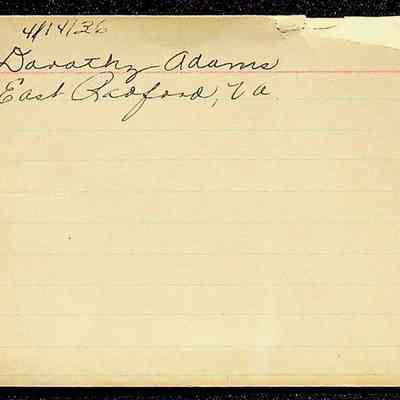 4/14/36
Dorothy Adams
East Radford, Va